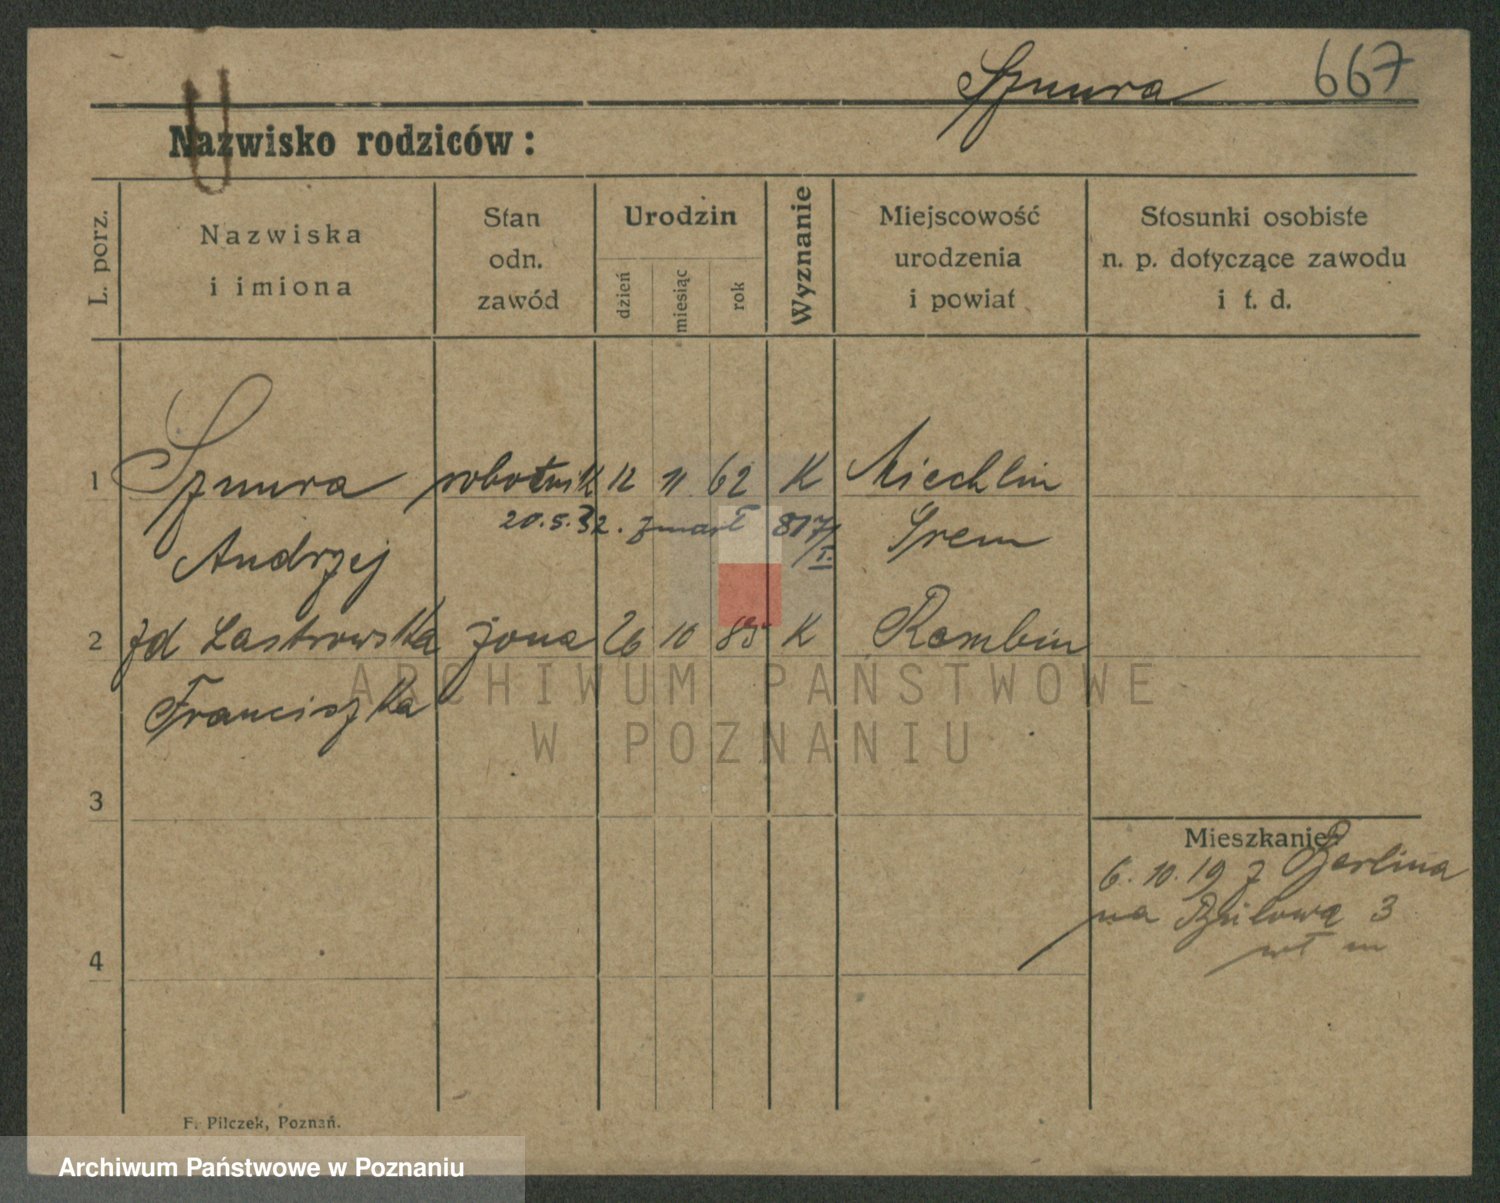 Szmura 667
Nazwisko rodziców:
L. porz.
Nazwiska
i imiona
Stan
odn.
zawód
Urodzin
dzień
miesiąc
rok
Wyznanie
Miejscowość
urodzenia
i powiat
Stosunki osobiste
n. p. dotyczące zawodu
i t. d.
1 Szmura robotnik 12 11 62 K Miechlin
20.5.32. zmarł 817/I. Śrem
Andrzej
2 zd Lastrowska żona 26 10 85 K Rombin
Franciszka
3
Mieszkanie
6.10.19 z Berlina
na Bülowa 3
4
ARCHIWUM PAŃSTWOWE
W POZNANIU
F. Pilczek, Poznań.
Archiwum Państwowe w Poznaniu